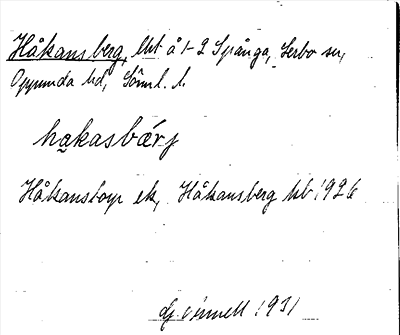 Håkansberg, lht å 1-2 Spånga, Lerbo sn,
Oppunda hd, Söml. l.
hakasbärj
Håkanstorp ek, Håkansberg kb 1926
1931